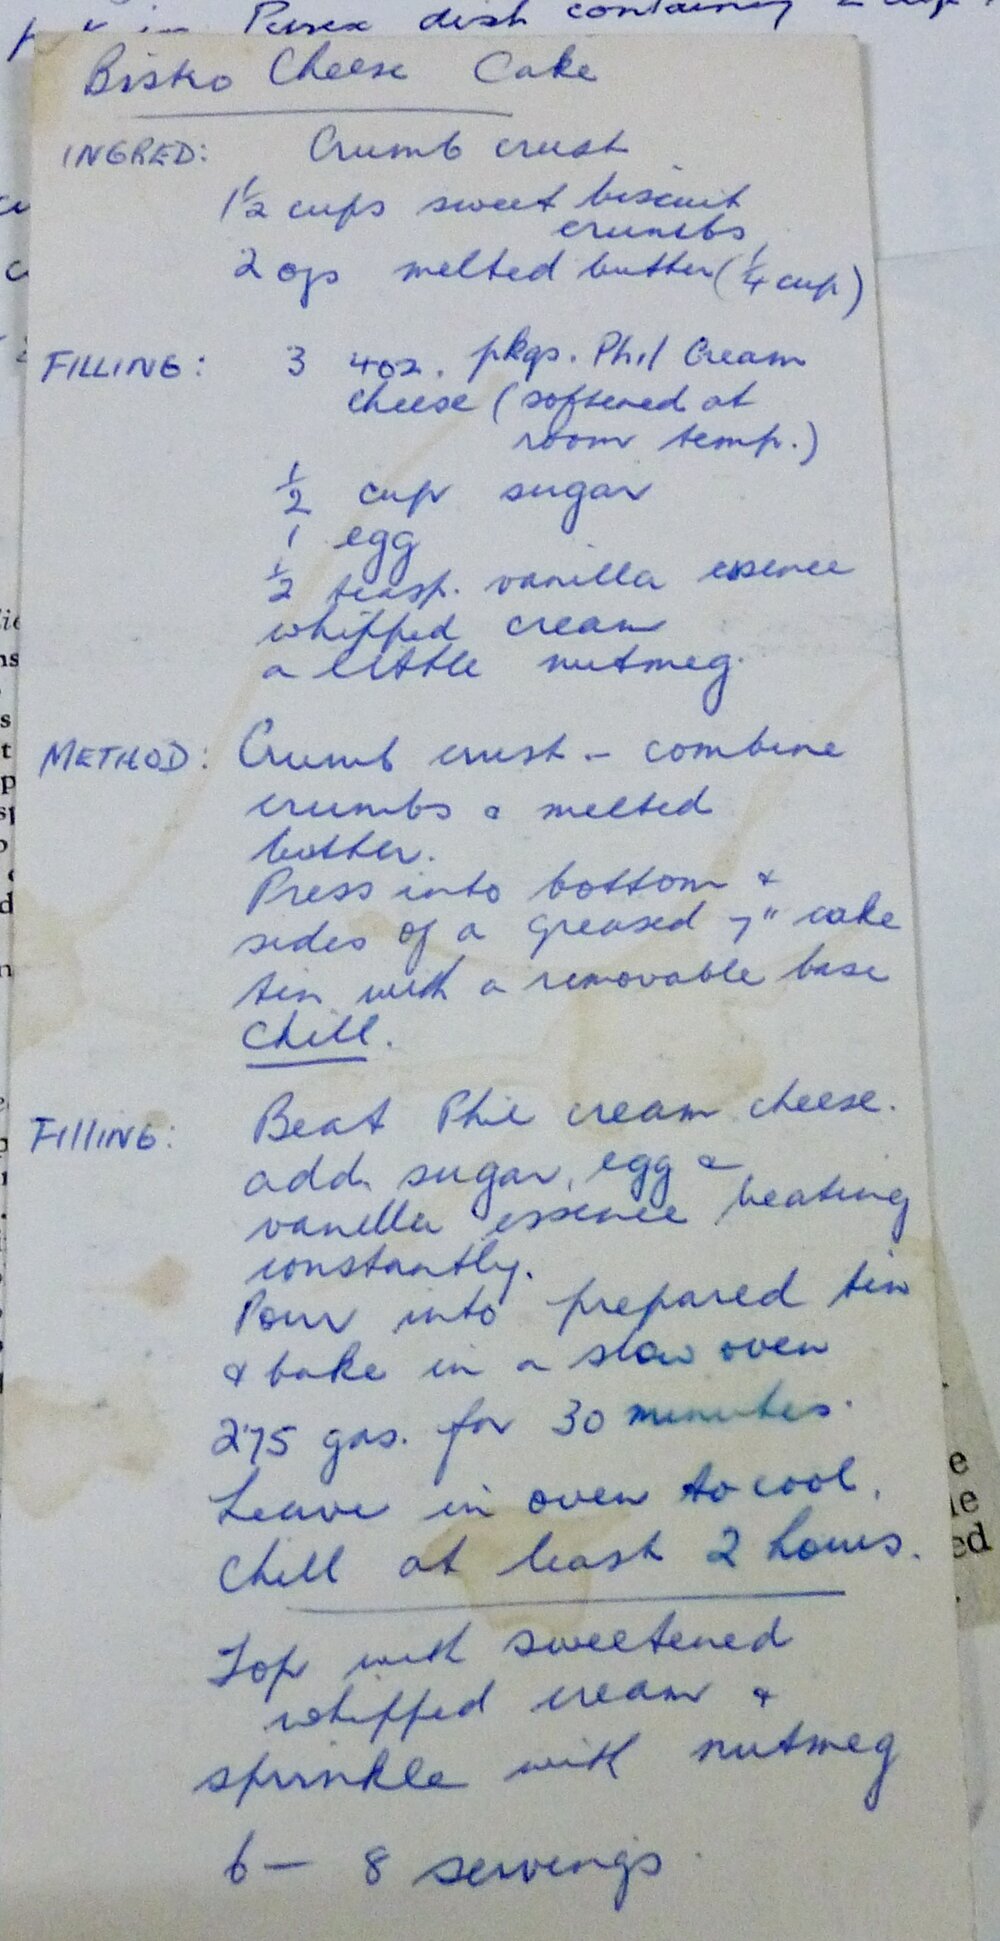 in Pyrex dish containing 2 cup
Bisko Cheese Cake
INGRED: Crumb crust
1½ cups sweet biscuit
crumbs
2 ozs melted butter (¼ cup)
FILLING: 3 4oz. pkgs. Phil Cream
cheese (softened at
room temp.)
½ cup sugar
1 egg
½ teasp. vanilla essence
whipped cream
a little nutmeg.
METHOD: Crumb crust - combine
crumbs & melted
butter.
Press into bottom &
sides of a greased 7" cake
tin with a removable base
Chill.
FIllING: Beat Phil cream cheese.
add sugar, egg &
vanilla essence beating
constantly.
Pour into prepared tin
& bake in a slow oven
275 gas. for 30 minutes.
Leave in oven to cool.
Chill at least 2 hours.
Top with sweetened
whipped cream &
sprinkle with nutmeg
6 - 8 servings.